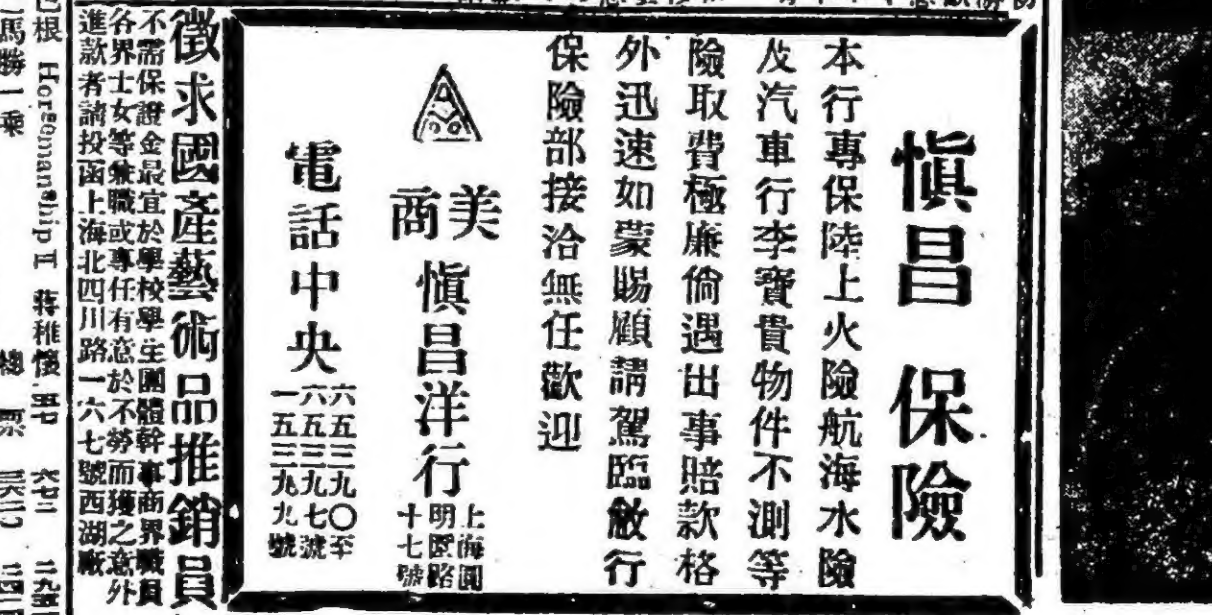 慎昌 保險
本行專保陸上火險航海水險
及汽車行李寶貴物件不測等
險取費極廉倘遇出事賠款格
外迅速如蒙賜顧請駕臨敝行
保險部接洽無任歡迎
美商 慎昌洋行
上海圓
明園路
十七號
電話中央
六五三九〇至
六五三九七號
一五三九九號
徵求國產藝術品推銷員
不需保證金最宜於學校學生團體幹事商界職員
各界士女等兼職或專任有意於不勞而獲之意外
進款者請投函上海北四川路一六七號西湖廠
根 Horsemanship II 蔣稚懷
馬勝一乘 總 票